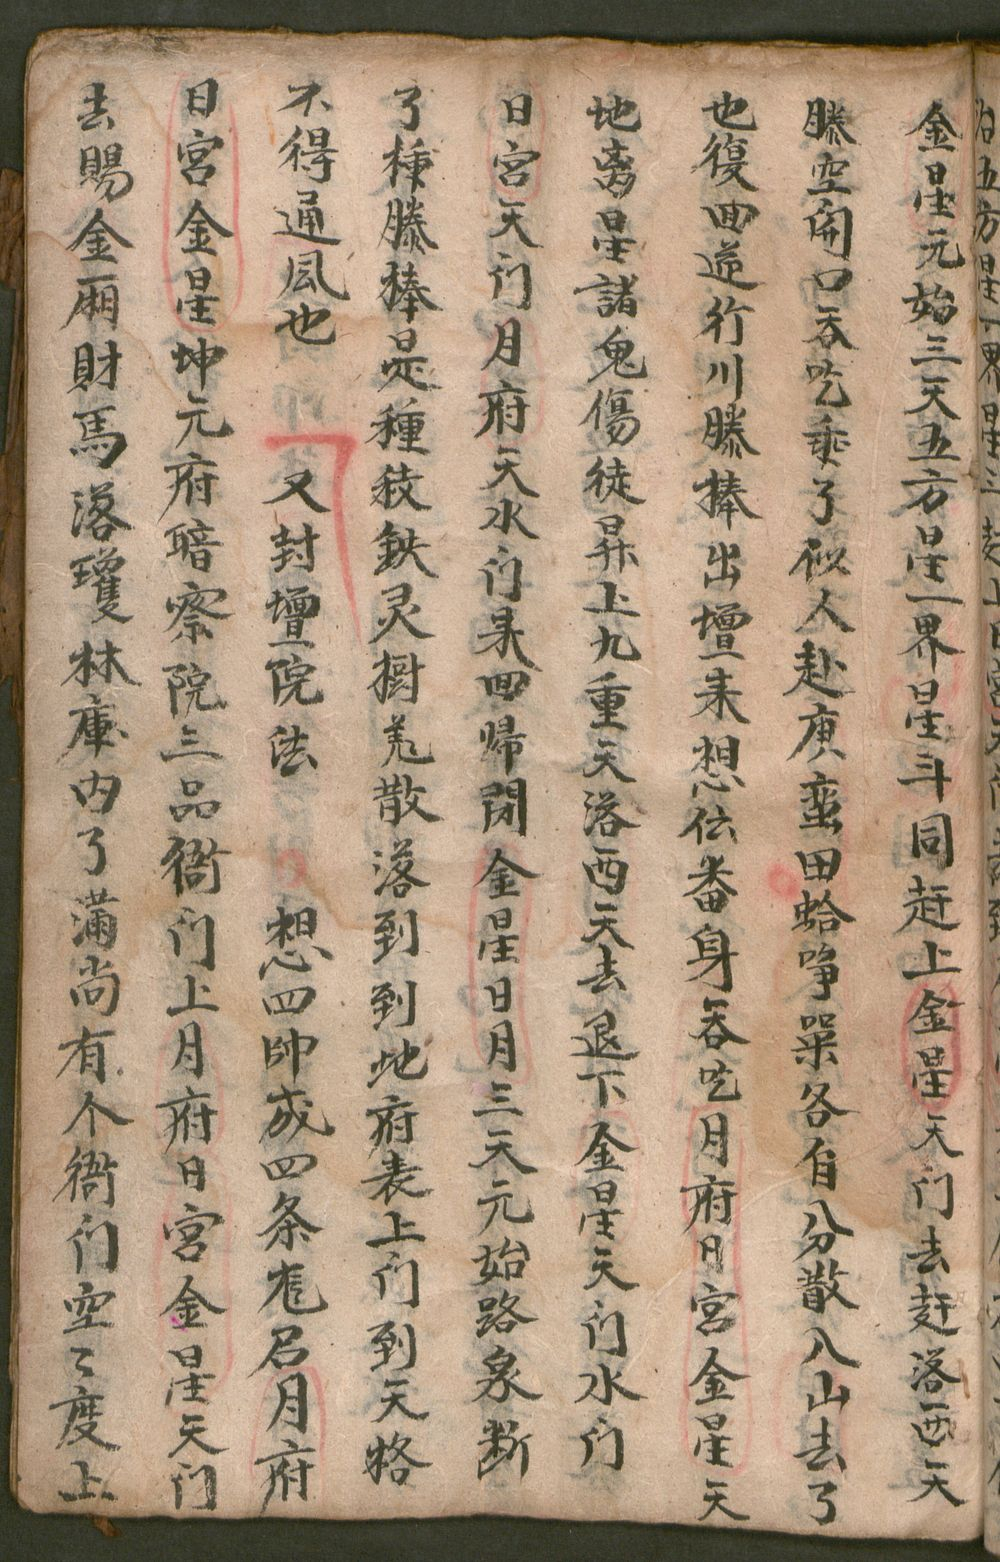 金星元始三天五方星一界星斗同赶上金星天门去赶落西天
滕空開口吞吃乖了似人赴庚蛮田蛤咿喿各自分散入山去了
也復回逆行川滕捧出壇来想伝番身吞吃月府日宮金星天
地离星諸鬼傷徒昇上九重天落西天去退下金星天门水门
日宮天门月府天水门杲回歸閉金星日月三天元始路泉断
了種滕捧是種鉄灵樹羗散落到到地府表上门到天格
不得通風也 又封壇院法 想四帥成四条嵬名月府
日宮金星坤元府暗察院三品衙门上月府日宮金星天门
去賜金廂財馬落瓊林庫内了滿尚有个衙门空〻度上
沿五方星一界星斗赶上日宮天